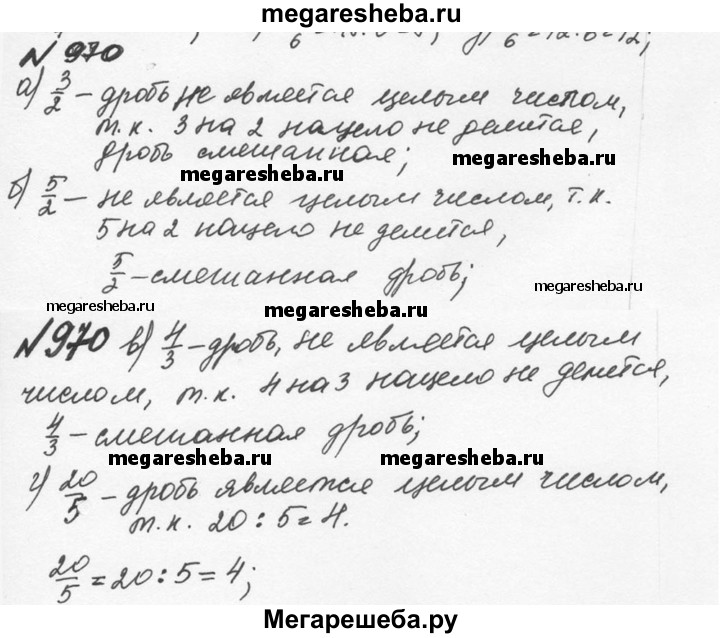 megaresheba.ru
N 970
а) 3/2 – дробь не является целым числом,
т.к. 3 на 2 нацело не делится,
дробь смешанная;
megaresheba.ru
megaresheba.ru
б) 5/2 – не является целым числом, т.к.
5 на 2 нацело не делится,
5/2 – смешанная дробь;
megaresheba.ru
megaresheba.ru
megaresheba.ru
N 970 в) 4/3 – дробь, не является целым
числом, т.к. 4 на 3 нацело не делится,
4/3 – смешанная дробь;
megaresheba.ru
megaresheba.ru
г) 20/5 – дробь является целым числом,
т.к. 20 : 5 = 4.
20/5 = 20 : 5 = 4;
Мегарешеба.ру